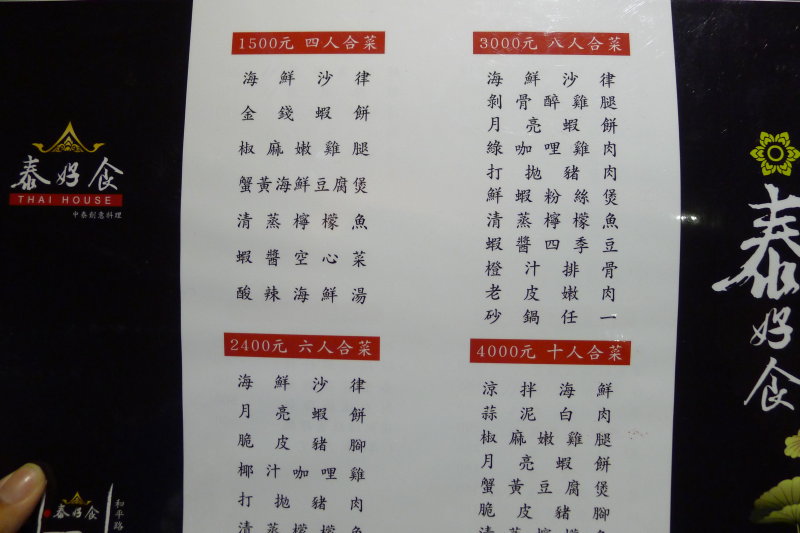 泰好食
THAI HOUSE
中泰創意料理
1500元 四人合菜
海鮮沙律
金錢蝦餅
椒麻嫩雞腿
蟹黃海鮮豆腐煲
清蒸檸檬魚
蝦醬空心菜
酸辣海鮮湯
2400元 六人合菜
海鮮沙律
月亮蝦餅
脆皮豬腳
椰汁咖哩雞
打拋豬肉
清蒸檸檬魚
3000元 八人合菜
海鮮沙律
剝骨醉雞腿
月亮蝦餅
綠咖哩雞肉
打拋豬肉
鮮蝦粉絲煲
清蒸檸檬魚
蝦醬四季豆
橙汁排骨
老皮嫩肉
砂鍋任一
4000元 十人合菜
涼拌海鮮
蒜泥白肉
椒麻嫩雞腿
月亮蝦餅
蟹黃豆腐煲
脆皮豬腳
清蒸檸檬魚
泰好食
泰好食
和平路